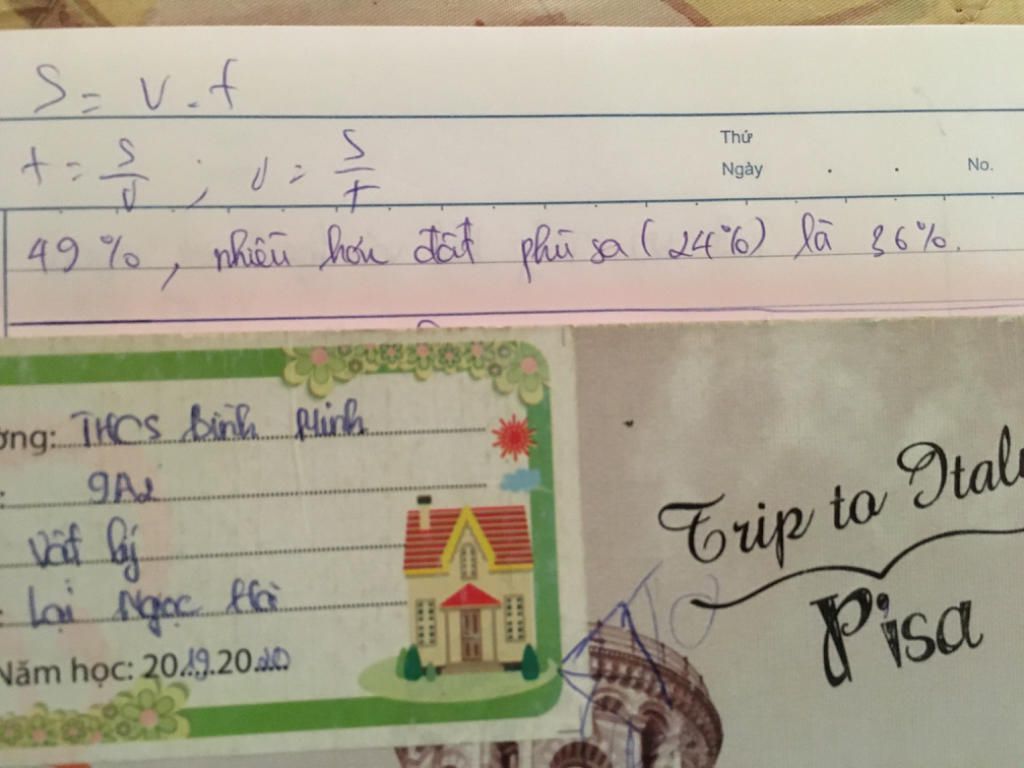 S = v . t
t = s/v ; v = s/t
Thứ
Ngày . . No.
49%, nhiều hơn đất phù sa (24%) là 36%.
ờng: THCS Bình Minh
: 9A2
Vật lý
: Lại Ngọc Hà
Năm học: 2019.2020
Trip to Ital
Pisa